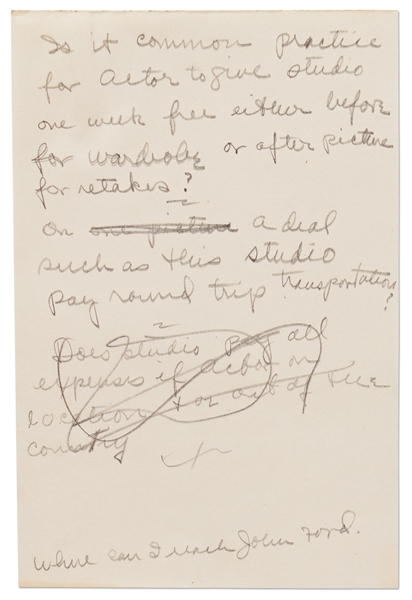 Is it common practice
for actor to give studio
one week free either before
for wardrobe or after picture
for retakes?
On one picture a deal
such as this studio
pay round trip transportation
?
Does studio pay all
expenses if actor on
location or out of the
country
where can I reach John Ford.